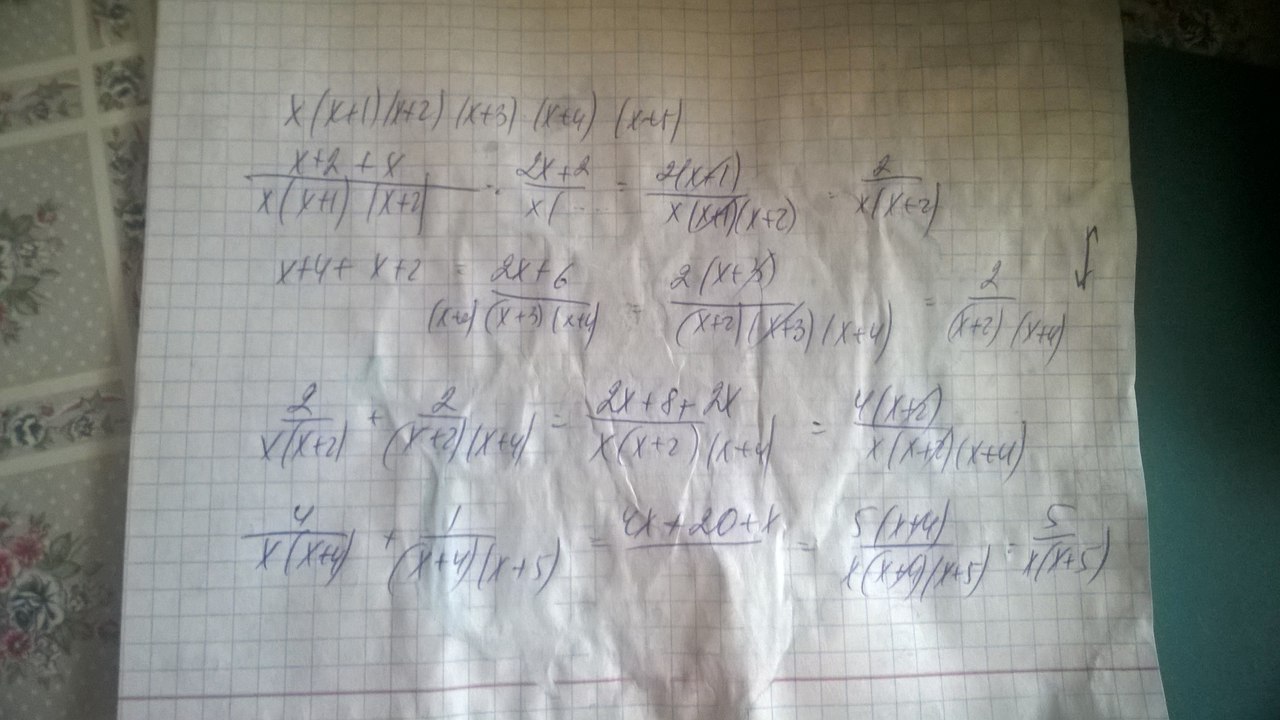 x(x+1)(x+2)(x+3)(x+4)(x+5)
(x+2+x)/(x(x+1)(x+2)) = (2x+2)/(x(...) = (2(x+1))/(x(x+1)(x+2)) = 2/(x(x+2))
x+4+x+2 = (2x+6)/((x+2)(x+3)(x+4)) = (2(x+3))/((x+2)(x+3)(x+4)) = 2/((x+2)(x+4))
2/(x(x+2)) + 2/((x+2)(x+4)) = (2x+8+2x)/(x(x+2)(x+4)) = (4(x+2))/(x(x+2)(x+4))
4/(x(x+4)) + 1/((x+4)(x+5)) = 4x+20+x = (5(x+4))/(x(x+4)(x+5)) = 5/(x(x+5))